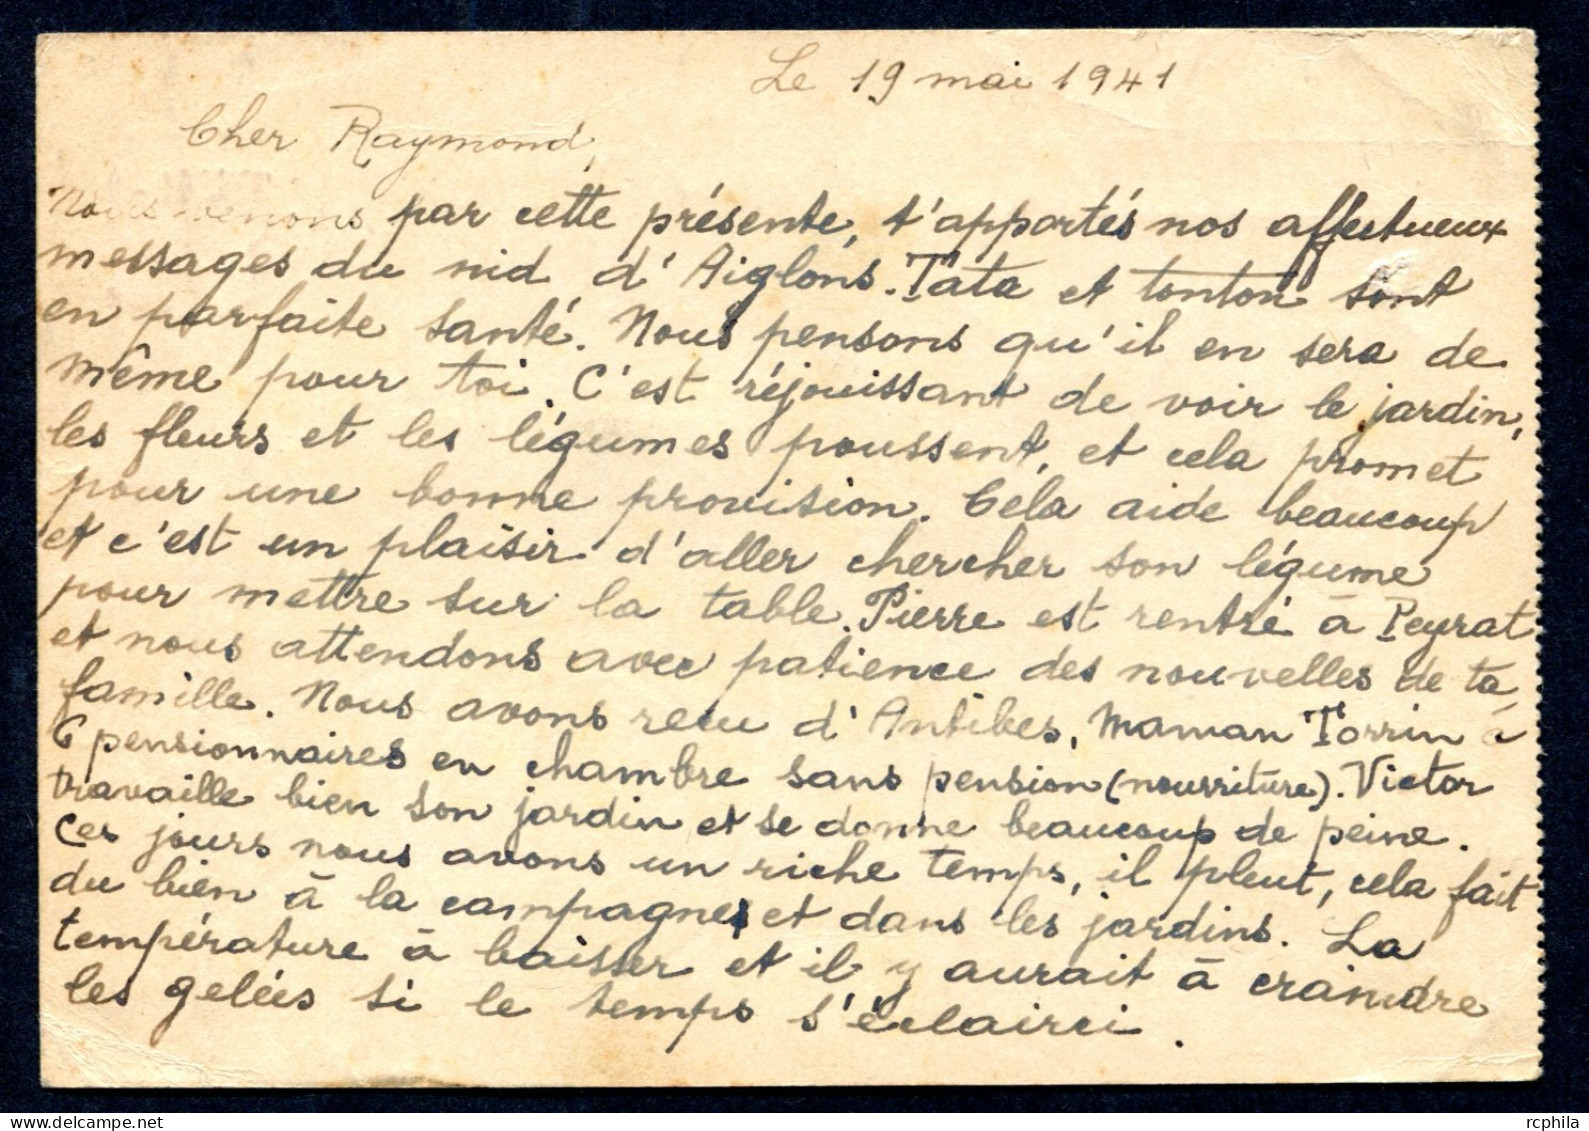 Le 19 mai 1941
Cher Raymond,
Nous venons par cette présente, t'apportés nos affectueux
messages du nid d'Aiglons. Tata et tonton sont
en parfaite santé. Nous pensons qu'il en sera de
même pour toi. C'est réjouissant de voir le jardin,
les fleurs et les légumes poussent, et cela promet
pour une bonne provision. Cela aide beaucoup
et c'est un plaisir d'aller chercher son légume
pour mettre sur la table. Pierre est rentré à Peyrat
et nous attendons avec patience des nouvelles de ta
famille. Nous avons recu d'Antibes, Maman Torrin a
6 pensionnaires en chambre sans pension (nourriture). Victor
travaille bien son jardin et se donne beaucoup de peine.
Ces jours nous avons un riche temps, il pleut, cela fait
du bien à la campagne et dans les jardins. La
température à baisser et il y aurait à craindre
les gelées si le temps s'éclairci.
rcphila
www.delcampe.net